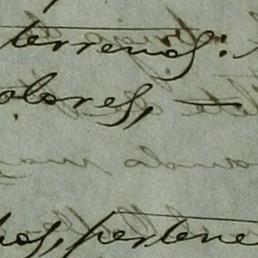 terrenos:
olores, —
os, pertene